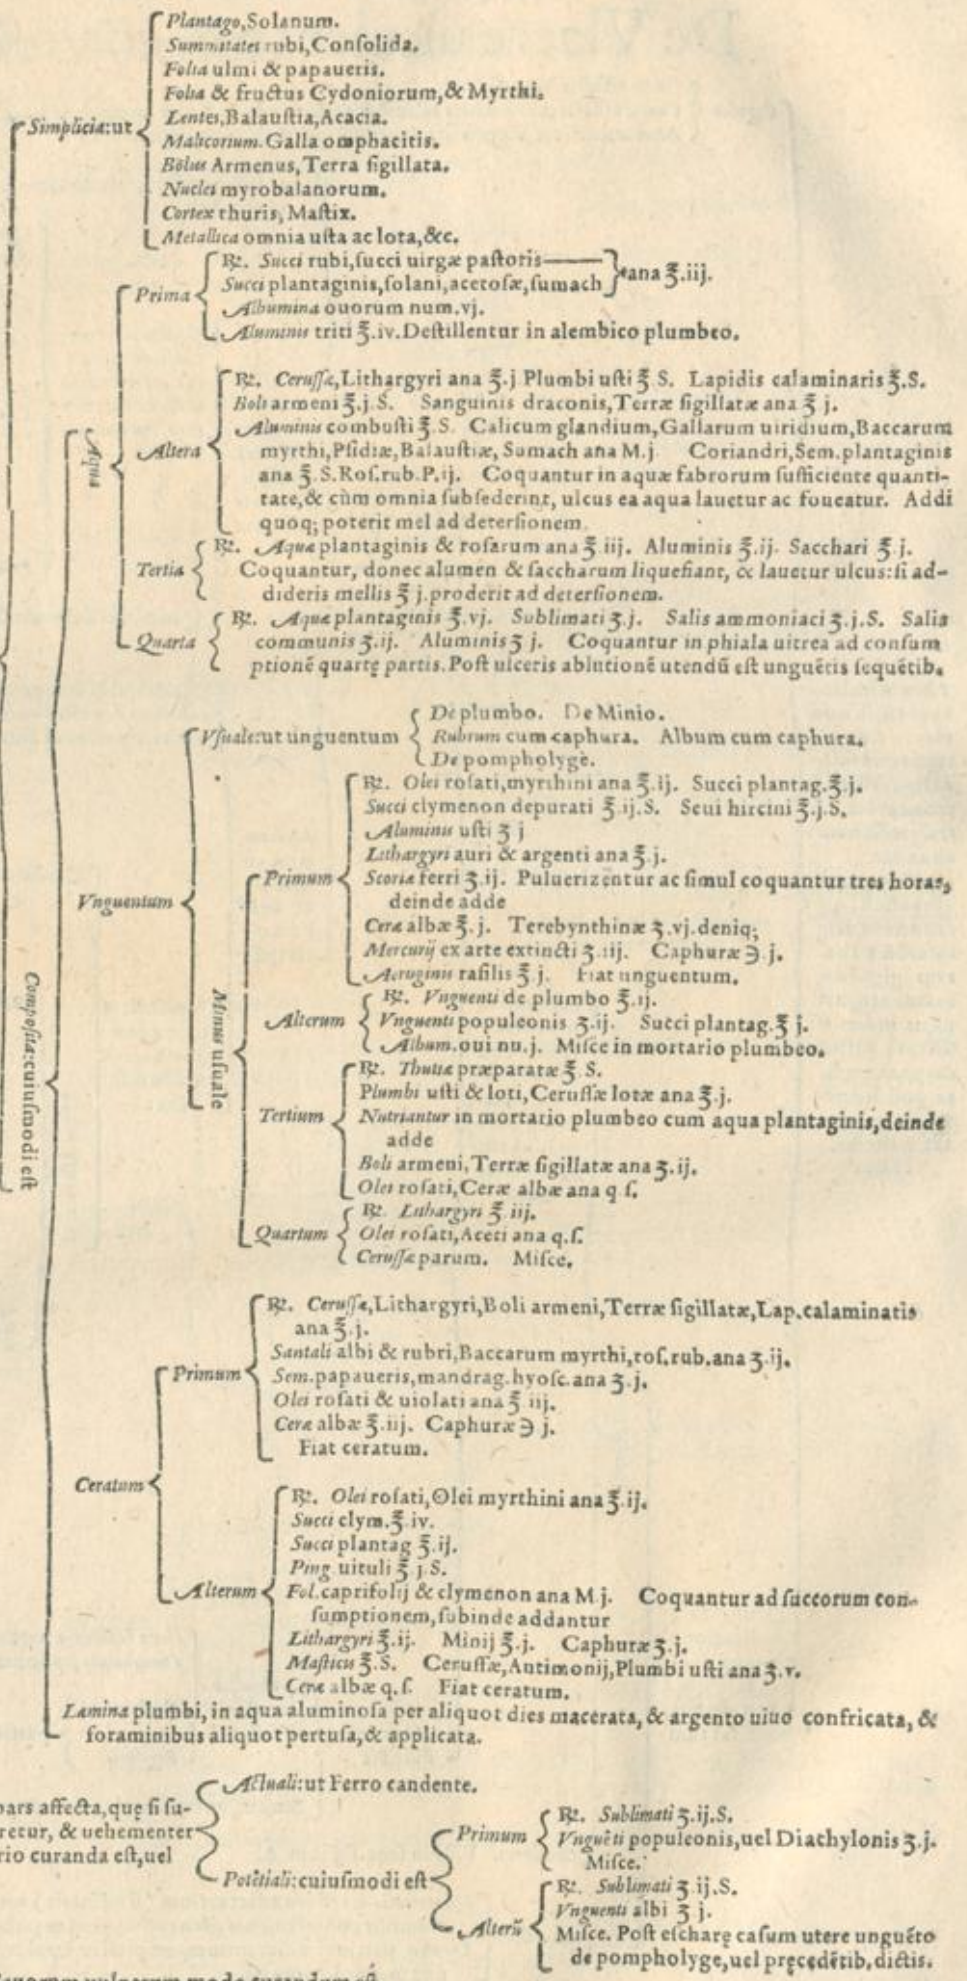 Plantago, Solanum.
Summitates rubi, Conſolida.
Folia ulmi & papaueris.
Folia & fructus Cydoniorum, & Myrthi.
Lentes, Balauſtia, Acacia.
Simplicia: ut
Malicorium. Galla omphacitis.
Bolus Armenus, Terra ſigillata.
Nuclei myrobalanorum.
Cortex thuris, Maſtix.
Metallica omnia uſta ac lota, &c.
℞. Succi rubi, ſucci uirgæ paſtoris
Succi plantaginis, ſolani, acetoſæ, ſumach ana ℥.iij.
Prima
Albumina ouorum num.vj.
Aluminis triti ℥.iv. Deſtillentur in alembico plumbeo.
℞. Ceruſſæ, Lithargyri ana ℥.j Plumbi uſti ℥ S. Lapidis calaminaris ℥.S.
Boli armeni ℥.j.S. Sanguinis draconis, Terræ ſigillatæ ana ℥ j.
Aluminis combuſti ℥.S. Calicum glandium, Gallarum uiridium, Baccarum
Altera
myrthi, Pſidiæ, Balauſtiæ, Sumach ana M.j. Coriandri, Sem. plantaginis
ana ℥.S. Roſ. rub. P. ij. Coquantur in aquæ fabrorum ſufficiente quanti-
tate, & cùm omnia ſubſederint, ulcus ea aqua lauetur ac foueatur. Addi
quoq; poterit mel ad deterſionem.
Aqua
℞. Aquæ plantaginis & roſarum ana ℥.iij. Aluminis ℥.ij. Sacchari ℥.j.
Tertia
Coquantur, donec alumen & ſaccharum liquefiant, & lauetur ulcus: ſi ad-
dideris mellis ℥ j. proderit ad deterſionem.
℞. Aquæ plantaginis ℥.vj. Sublimati ʒ.j. Salis ammoniaci ʒ.j.S. Salis
Quarta
communis ʒ.ij. Aluminis ʒ j. Coquantur in phiala uitrea ad conſum
ptionē quartę partis. Poſt ulceris ablutionē utendū eſt unguētis ſequētib.
De plumbo. De Minio.
Vſuale: ut unguentum
Rubrum cum caphura. Album cum caphura.
De pompholyge.
℞. Olei roſati, myrthini ana ℥.ij. Succi plantag. ℥.j.
Succi clymenon depurati ℥.ij.S. Seui hircini ℥.j.S.
Aluminis uſti ʒ j
Lithargyri auri & argenti ana ℥.j.
Primum
Scoriæ ferri ʒ.ij. Puluerizentur ac ſimul coquantur tres horas,
deinde adde
Vnguentum
Ceræ albæ ℥.j. Terebynthinæ ʒ.vj. deniq;
Mercurij ex arte extincti ʒ.iij. Caphuræ ℈ j.
Aeruginis raſilis ℥ j. Fiat unguentum.
Minus uſuale
℞. Vnguenti de plumbo ℥.ij.
Alterum
Vnguenti populeonis ʒ.ij. Succi plantag. ℥ j.
Album. oui nu.j. Miſce in mortario plumbeo.
℞. Thutiæ præparatæ ℥.S.
Plumbi uſti & loti, Ceruſſæ lotæ ana ℥.j.
Tertium
Nutriantur in mortario plumbeo cum aqua plantaginis, deinde
adde
Boli armeni, Terræ ſigillatæ ana ʒ.ij.
Olei roſati, Ceræ albæ ana q.ſ.
Compoſita: cuiuſmodi eſt
℞. Lithargyri ℥.iij.
Quartum
Olei roſati, Aceti ana q.ſ.
Ceruſſæ parum. Miſce.
℞. Ceruſſæ, Lithargyri, Boli armeni, Terræ ſigillatæ, Lap. calaminatis
ana ℥.j.
Santali albi & rubri, Baccarum myrthi, roſ. rub. ana ʒ.ij.
Primum
Sem. papaueris, mandrag. hyoſc. ana ʒ.j.
Olei roſati & uiolati ana ℥ iij.
Ceræ albæ ℥.iij. Caphuræ ℈ j.
Fiat ceratum.
Ceratum
℞. Olei roſati, Olei myrthini ana ℥.ij.
Succi clym. ℥.iv.
Succi plantag ℥.ij.
Ping. uituli ℥ j.S.
Alterum
Fol. caprifolij & clymenon ana M.j. Coquantur ad ſuccorum con-
ſumptionem, ſubinde addantur
Lithargyri ℥.ij. Minij ℥.j. Caphuræ ʒ.j.
Maſticis ℥.S. Ceruſſæ, Antimonij, Plumbi uſti ana ʒ.v.
Ceræ albæ q.ſ. Fiat ceratum.
Lamina plumbi, in aqua aluminoſa per aliquot dies macerata, & argento uiuo confricata, &
foraminibus aliquot pertuſa, & applicata.
Actuali: ut Ferro candente.
pars affecta, quę ſi ſu-
retur, & uehementer
rio curanda eſt, uel
Potētiali: cuiuſmodi eſt
℞. Sublimati ʒ.ij.S.
Primum
Vnguēti populeonis, uel Diachylonis ʒ.j.
Miſce.
℞. Sublimati ʒ ij.S.
Vnguenti albi ʒ j.
Alterū
Miſce. Poſt eſcharę caſum utere unguēto
de pompholyge, uel pręcedētib. dictis.